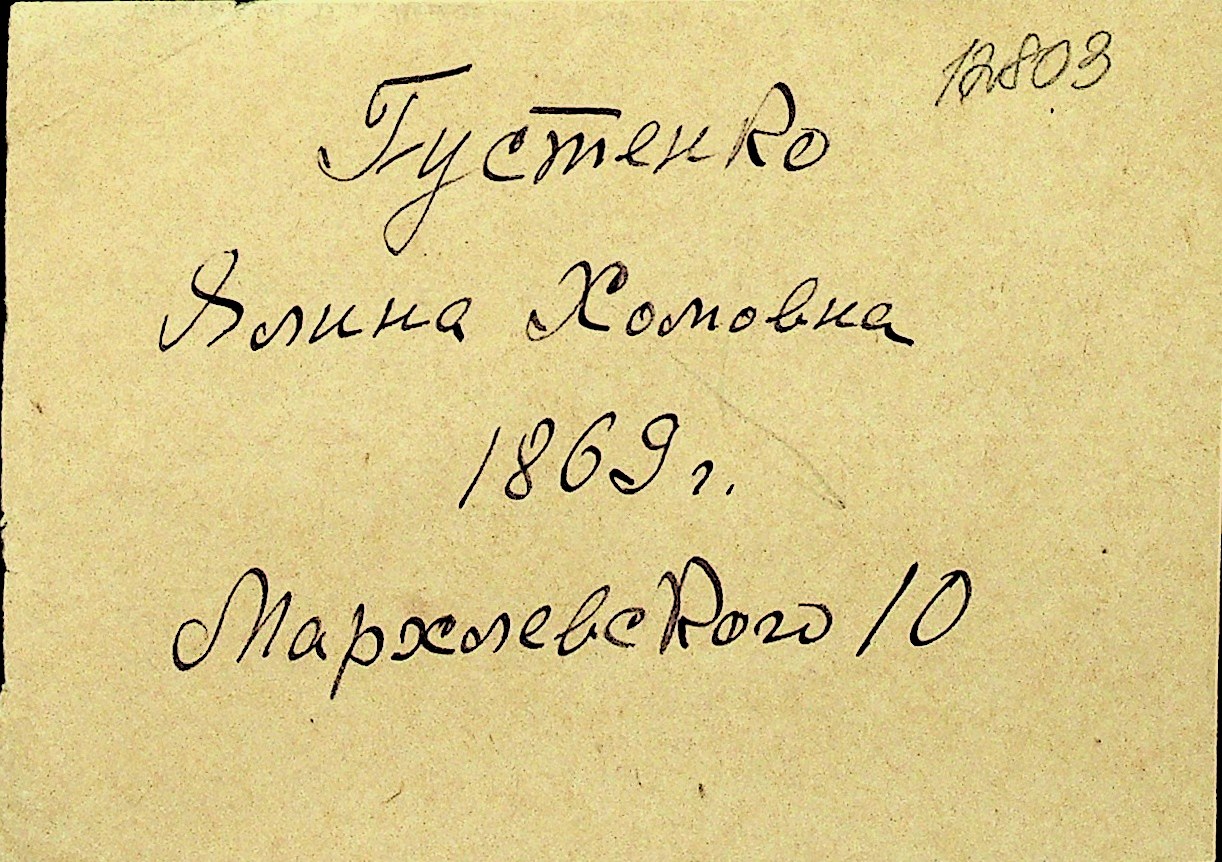 12803
Густенко
Ялина Хомовна
1869 г.
Мархлевского 10